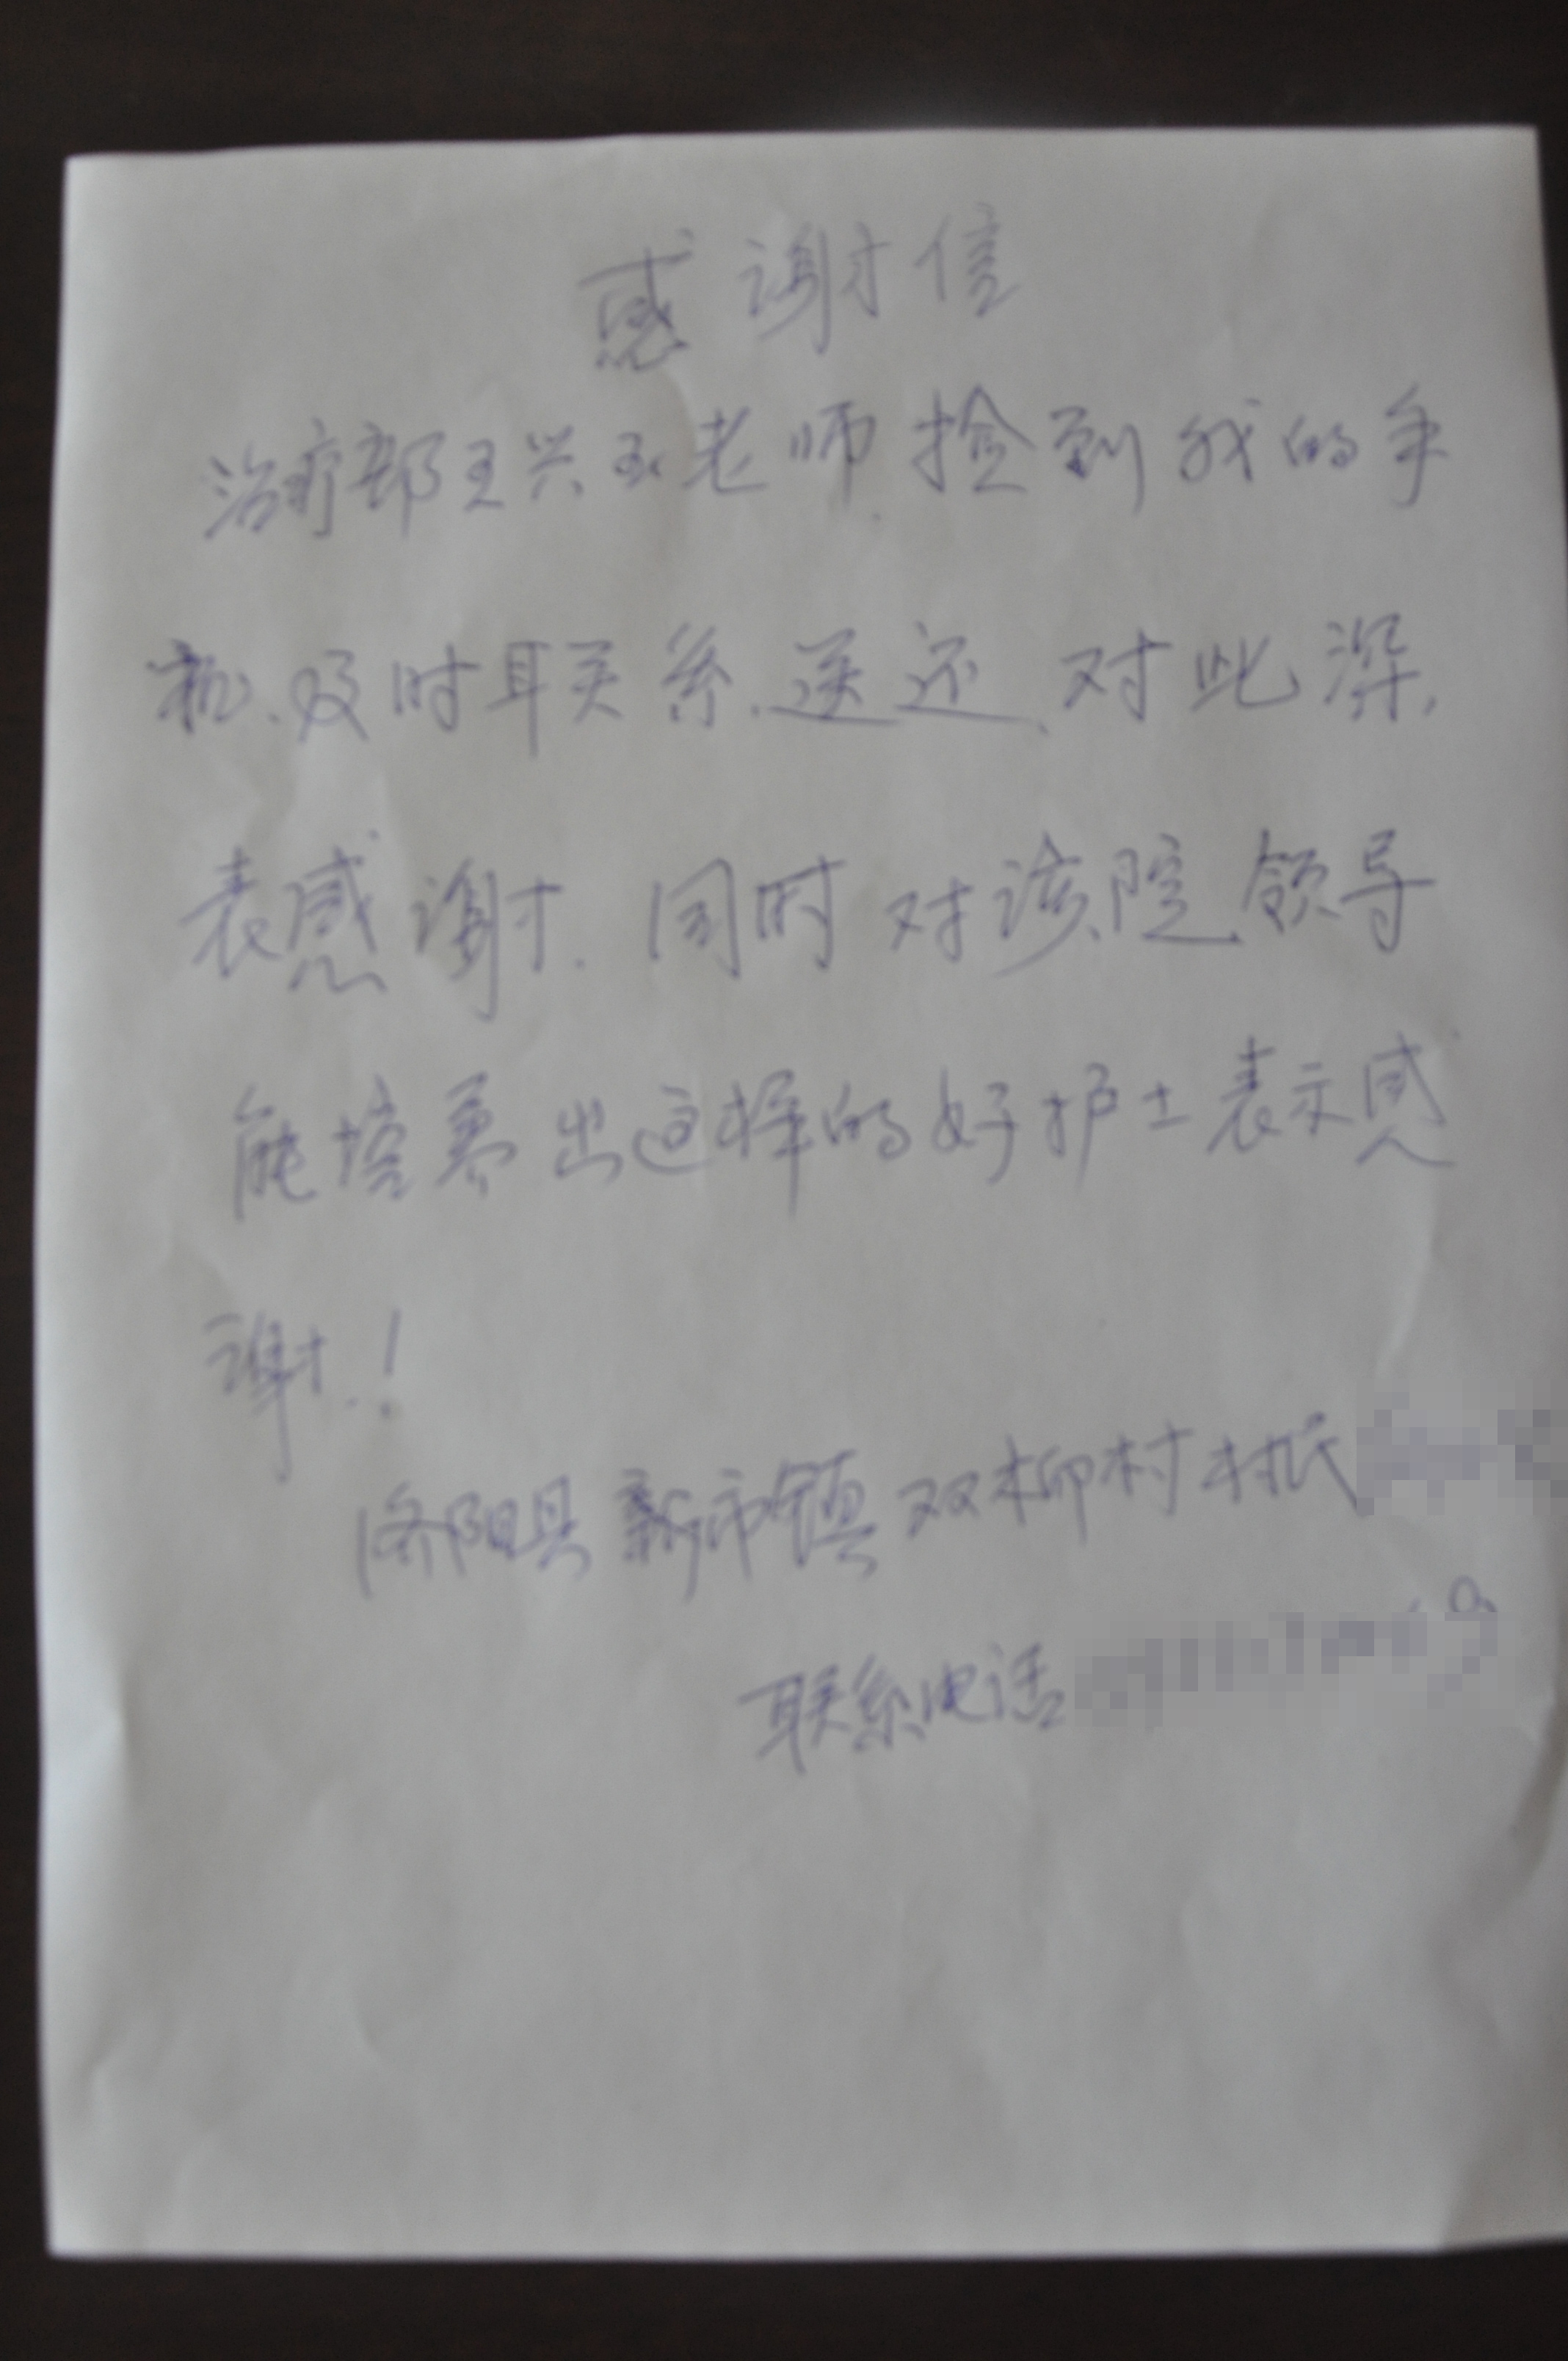 感谢信
治疗部王兴玉老师.捡到我的手
机、及时联系.送还、对此深
表感谢.同时对该院领导
能培养出这样的好护士表示感
谢.!
洛阳县新市镇双柳村村民
联系电话